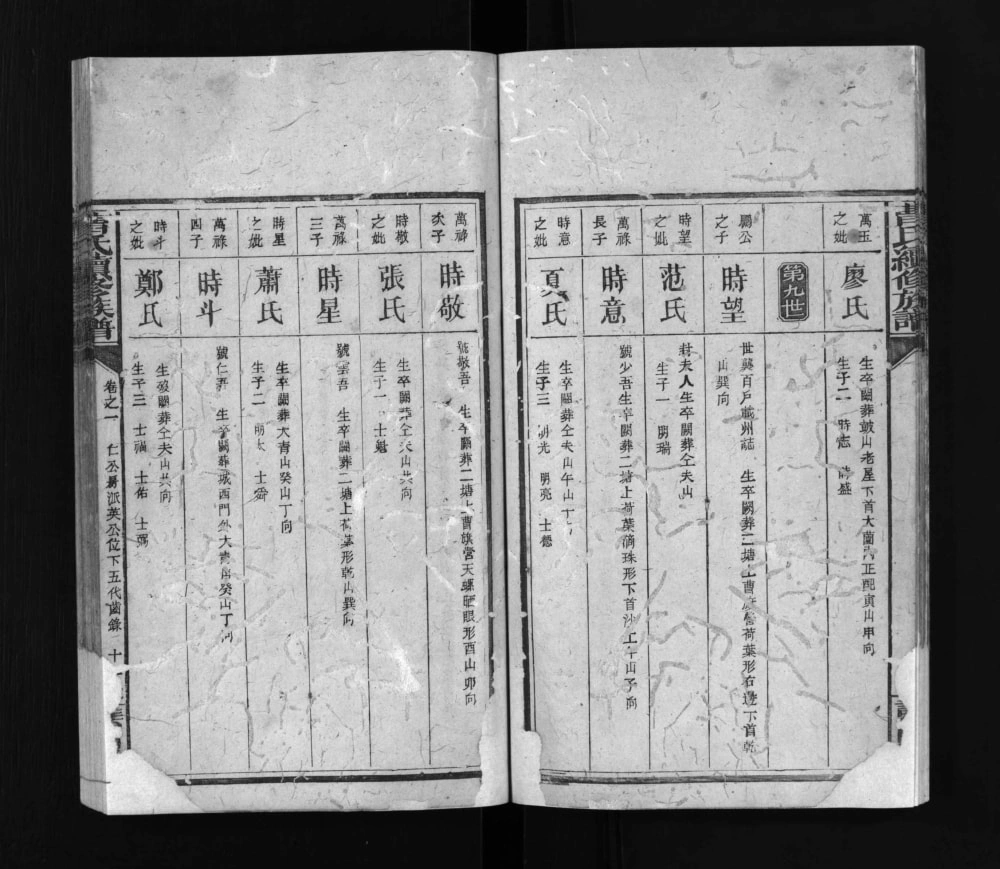 萬玉
之妣
廖氏
生卒闕葬皷山老屋下首大蘭
正配寅山申向
生子二 時志 時盛
第九世
之子
時望
世襲百戶載州誌 生卒闕葬二塘上曹
荷葉形右邊下首乾
山巽向
時望
之妣
范氏
封夫人生卒闕葬仝夫山
生子一 明瑞
萬祿
長子
時意
號少吾生卒闕葬二塘上荷葉滴珠形下首沙上午山子向
時意
之妣
頁氏
生卒闕葬仝夫山午山
生子三 明光 明亮 士德
萬祿
次子
時敬
號敬吾 生卒闕葬二塘上曹旗營天螺曬眼形酉山卯向
時敬
之妣
張氏
生卒闕葬仝夫山共向
生子一 士魁
萬祿
三子
時星
號雲吾 生卒闕葬二塘上荷葉形乾山巽向
時星
之妣
蕭氏
生卒闕葬大青山癸山丁向
生子二
萬祿
四子
時斗
號仁吾 生卒闕葬城西門外大青
癸山丁向
時斗
之妣
鄭氏
生歿闕葬仝夫山共向
生子三 士禎 士佑
氏續修族譜
卷之一
派英公位下五代齒錄 十